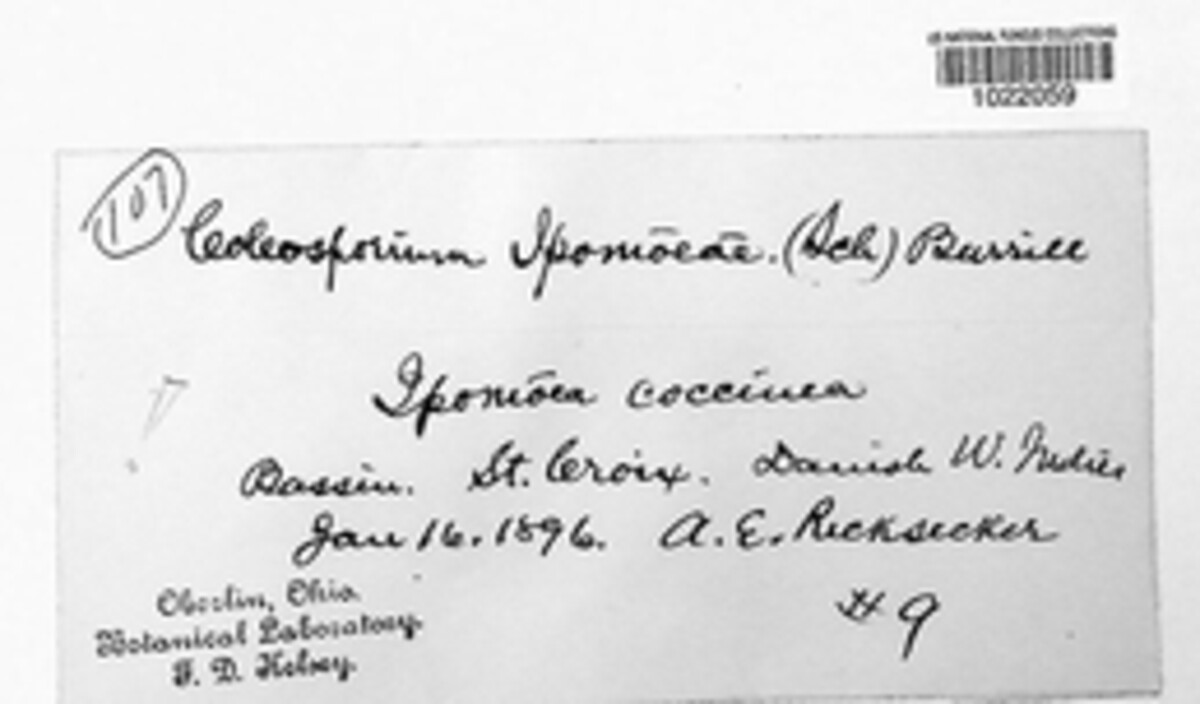 US NATIONAL FUNGUS COLLECTIONS
1022059
107
Coleosporium Ipomōeāe. (Sch) Burrill
Ipomōea coccinea
Bassin. St. Croix. Danish W. Indies
Jan 16. 1896. A. E. Ricksecker
# 9
Oberlin, Ohio.
Botanical Laboratory.
F. D. Kelsey.